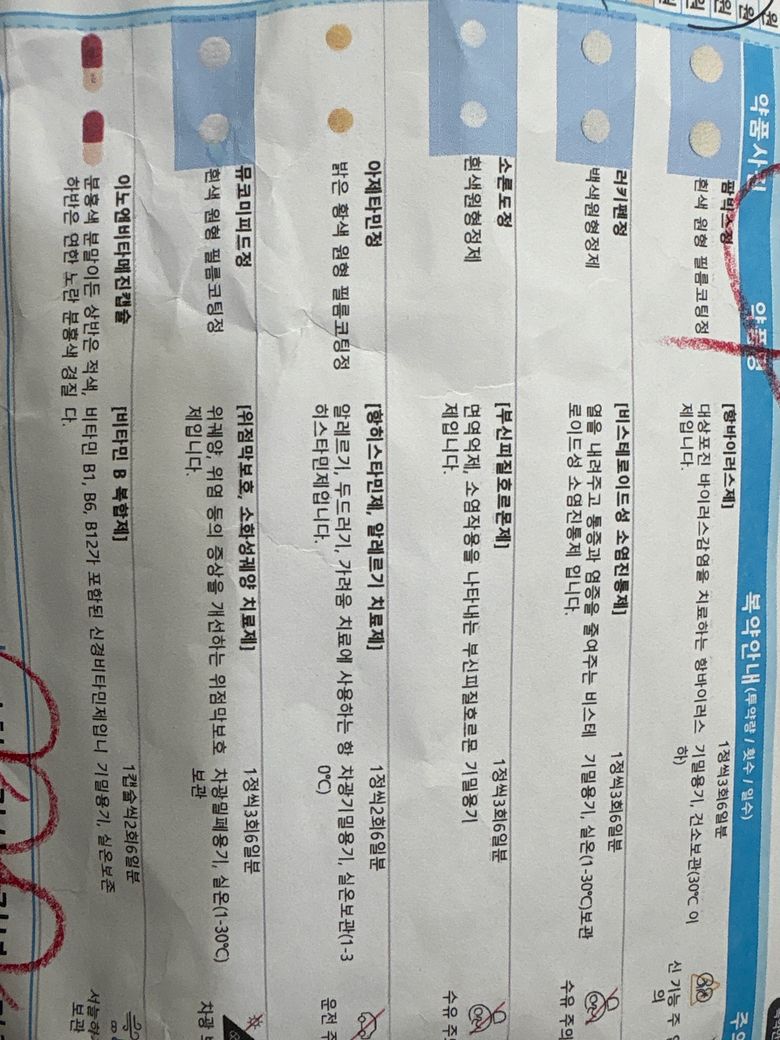 원 원 원 원
약품사진 약품명 복약안내(투약량 / 횟수 / 일수)
팜빅스정
흰색 원형 필름코팅정
[항바이러스제]
대상포진 바이러스감염을 치료하는 항바이러스
제입니다.
1정씩3회6일분
기밀용기, 건소보관(30℃ 이
하)
신 기능 주
의
러키펜정
백색원형정제
[비스테로이드성 소염진통제]
열을 내려주고 통증과 염증을 줄여주는 비스테
로이드성 소염진통제 입니다.
1정씩3회6일분
기밀용기, 실온(1-30℃)보관
수유 주의
소론도정
흰색원형정제
[부신피질호르몬제]
면역억제, 소염작용을 나타내는 부신피질호르몬
제입니다.
1정씩3회6일분
기밀용기
수유 주의
아제타민정
밝은 황색 원형 필름코팅정
[항히스타민제, 알레르기 치료제]
알레르기, 두드러기, 가려움 치료에 사용하는 항
히스타민제입니다.
1정씩2회6일분
차광기밀용기, 실온보관(1-3
0℃)
운전 주
뮤코미피드정
흰색 원형 필름코팅정
[위점막보호, 소화성궤양 치료제]
위궤양, 위염 등의 증상을 개선하는 위점막보호
제입니다.
1정씩3회6일분
차광밀폐용기, 실온(1-30℃)
보관
차광
이노엔비타메진캡슐
분홍색 분말이든 상반은 적색,
하반은 연한 노란 분홍색 경질
[비타민 B 복합제]
비타민 B1, B6, B12가 포함된 신경비타민제입니
다.
1캡슐씩2회6일분
기밀용기, 실온보존
서늘하
보관